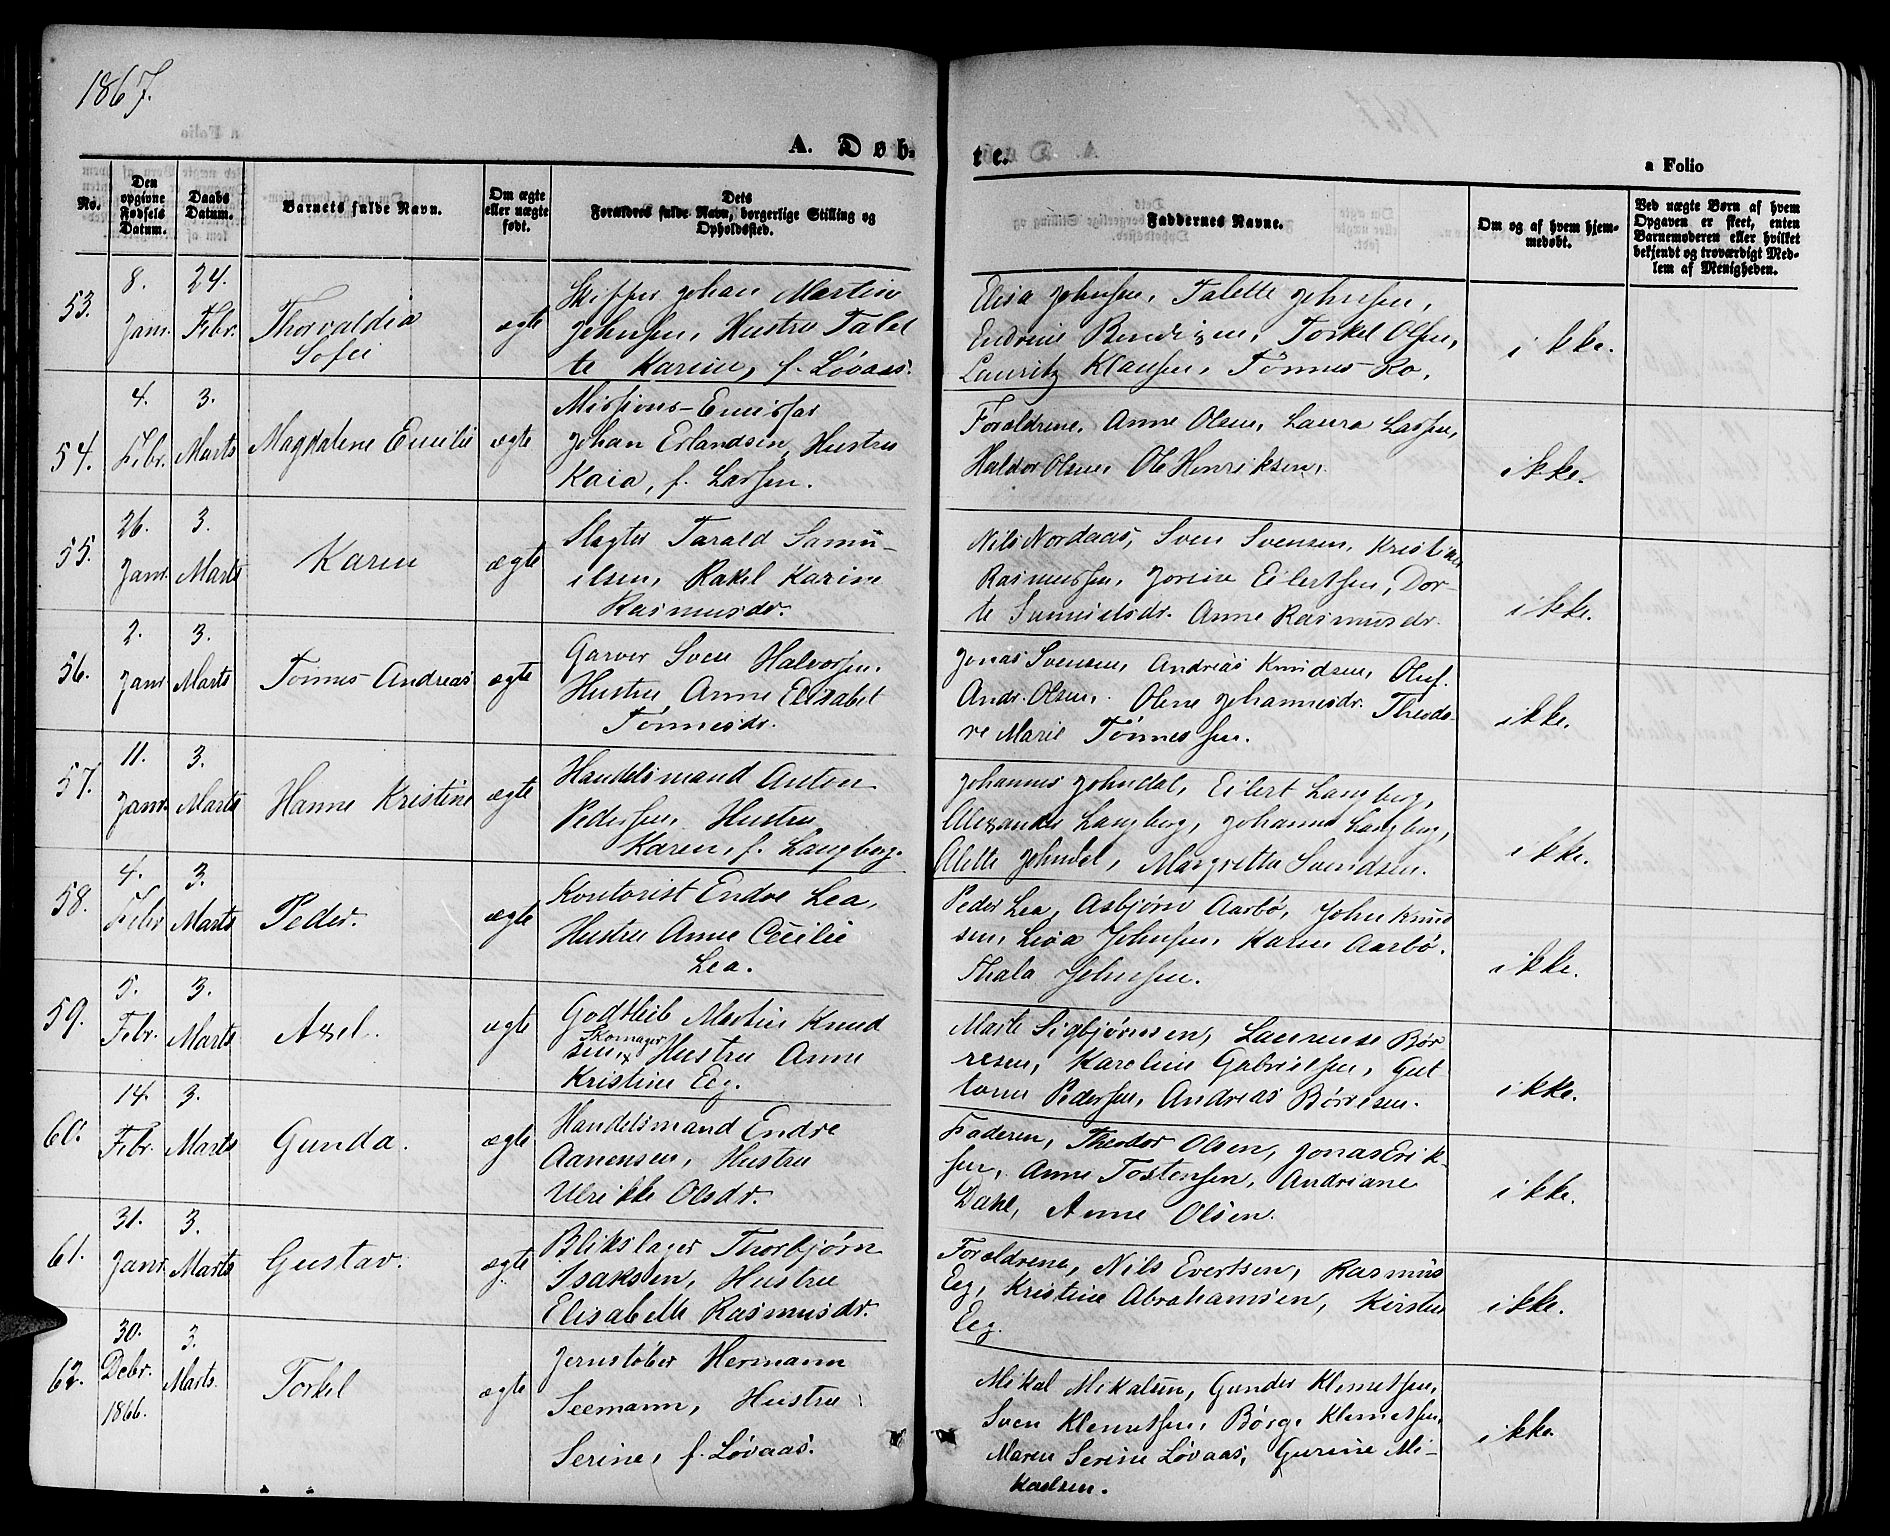 1867.
A. Døb-
te.
a Folio
No.
Den opgivne Fødsels Datum.
Daabs Datum.
Barnets fulde Navn.
Om ægte eller uægte født.
Dets Forældres fulde Navn, borgerlige Stilling og Opholdssted.
Faddernes Navne.
Om og af hvem hjemmedøbt.
Ved uægte Børn af hvem Opgaven er skeet, enten Barnemoderen eller hvilket bekjendt og troværdigt Medlem af Menigheden.
53.
8. Janr.
24. Febr.
Thorvaldia
Sofie
ægte
Skipper Johan Martin
Johnsen, Hustru Talet
te Karine, f. Løvaas.
Elisa Johnsen, Talette Johnsen,
Endrine Bendixen, Torkel Olsen,
Lauritz Klausen, Tønnes Ro.
ikke.
54.
4. Febr.
3. Marts
Magdalene Emilie
ægte
Missions-Emissær
Johan Erlandsen, Hustru
Kaia, f. Larsen.
Forældrene, Anne Olsen, Laura Larsen,
Haldor Olsen, Ole Henriksen.
ikke.
55.
26. Janr.
3. Marts
Karen
ægte
Slagter Tarald Samu-
elsen, Rakel Karine
Rasmusdr.
Nils Nordaas, Sven Svensen, Kristian
Rasmussen, Jorine Eilertsen, Dor-
te Samuelsdr. Anne Rasmusdr.
ikke.
56.
2. Janr.
3. Marts
Tønnes Andreas
ægte
Garver Sven Halvorsen.
Hustru Anne Elisabet
Tønnesdr.
Jonas Svensen, Andreas Knudsen, Oluf.
Andr. Olsen, Olene Johannesdr. Theodo-
re Marie Tønnessen.
ikke.
57.
11. Janr.
3. Marts
Hanne Kristine
ægte
Handelsmand Anton
Pedersen, Hustru
Karen, f. Langberg.
Johannes Johndal, Eilert Langberg,
Alexander Langberg, Johanne Langberg,
Alette Johndal, Margrethe Svendsen.
ikke.
58.
4. Febr
3. Marts
Peder.
ægte
Kontorist Endre Lea,
Hustru Anne Cecilie
Lea.
Peder Lea, Asbjørn Aarbø, John Knud
sen, Lisa Johnsen, Karen Aarbø.
Thala Johnsen.
ikke.
59.
5. Febr.
3. Marts
Axel.
ægte
Godtleib Martin Knud
Skomager
sen, x Hustru Anne
Kristine Eeg.
Marte Sigbjørnsen, Laurense Bør
resen, Karoline Gabrielsen, Gut
torm Pedersen, Andreas Børresen.
ikke.
60.
14. Febr.
3. Marts
Gunda.
ægte
Handelsmand Endre
Aanensen, Hustru
Ulrikke Olsdr.
Faderen, Theodor Olsen, Jonas Erik-
sen, Anne Tostensen, Andriane
Dahl, Anne Olsen.
ikke.
61.
31. Janr
3. Marts
Gustav.
ægte
Blikslager Thorbjørn
Isaksen, Hustru
Elisabeth Rasmusdr.
Forældrene, Nils Evertsen, Rasmus
Eeg, Kristine Abrahamsen, Kirsten
Eeg.
ikke.
62.
30. Debr. 1866.
3. Marts.
Torkel
ægte
Jernstøber Hermann
Seemann, Hustru
Serine, f. Løvaas.
Mikal Mikalsen, Gunder Klemetsen,
Sven Klemetsen, Børge Klemetsen,
Maren Serine Løvaas, Gurine Mi-
kaelsen.
ikke.